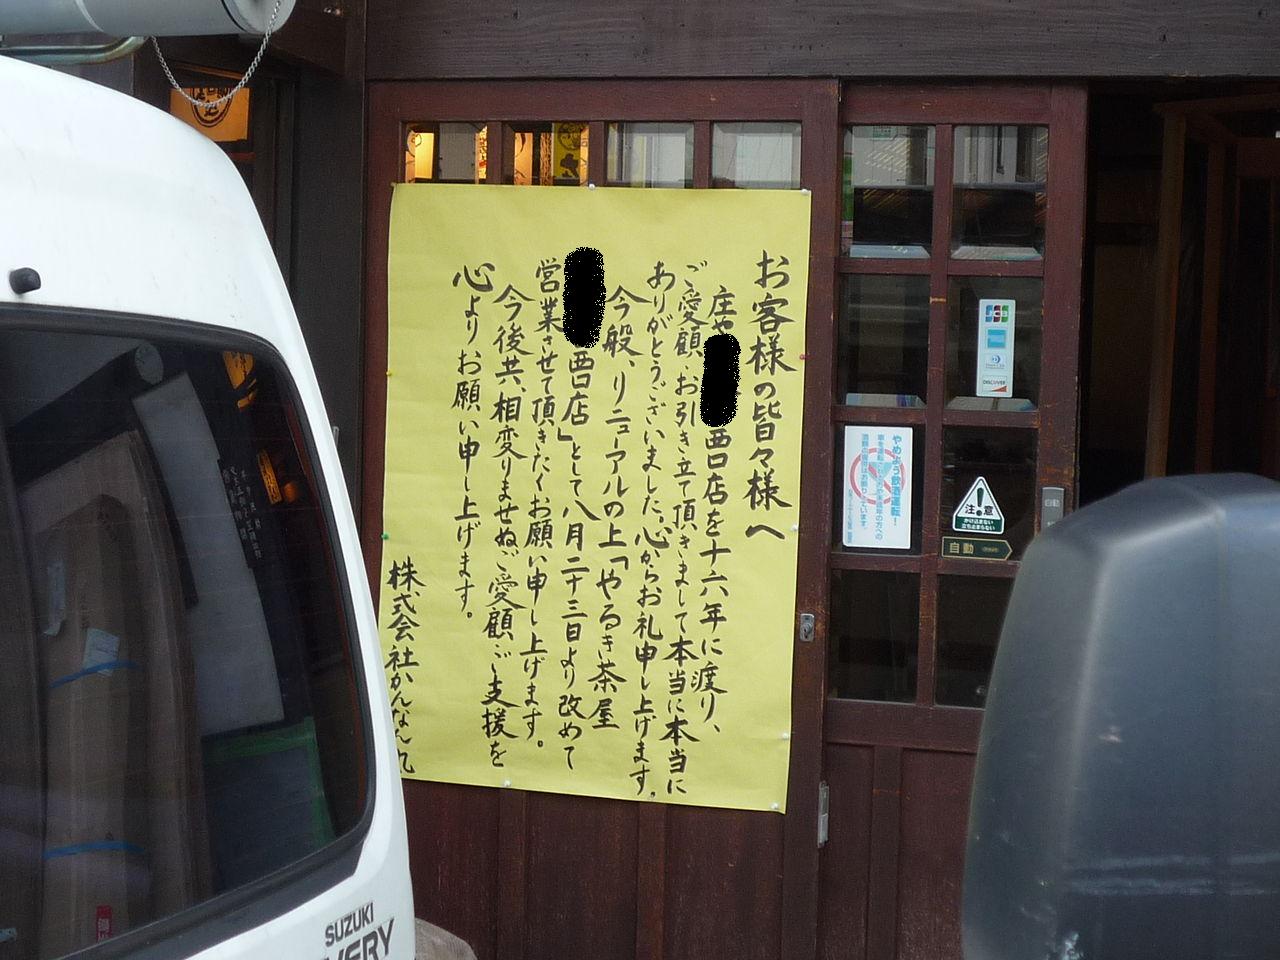 お客様の皆々様へ
庄や
西口店を十六年に渡り、
ご愛顧、お引き立て頂きまして本当に本当に
ありがとうございました。心からお礼申し上げます。
今般、リニューアルの上「やるき茶屋
西口店」として八月二十三日より改めて
営業させて頂きたくお願い申し上げます。
今後共、相変りませぬご愛顧ご支援を
心よりお願い申し上げます。
株式会社かんなん丸
JCB
DISCOVER
やめよう飲酒運転!
注意
かけ込まない
立ち止まらない
自動
自動
SUZUKI
VERY